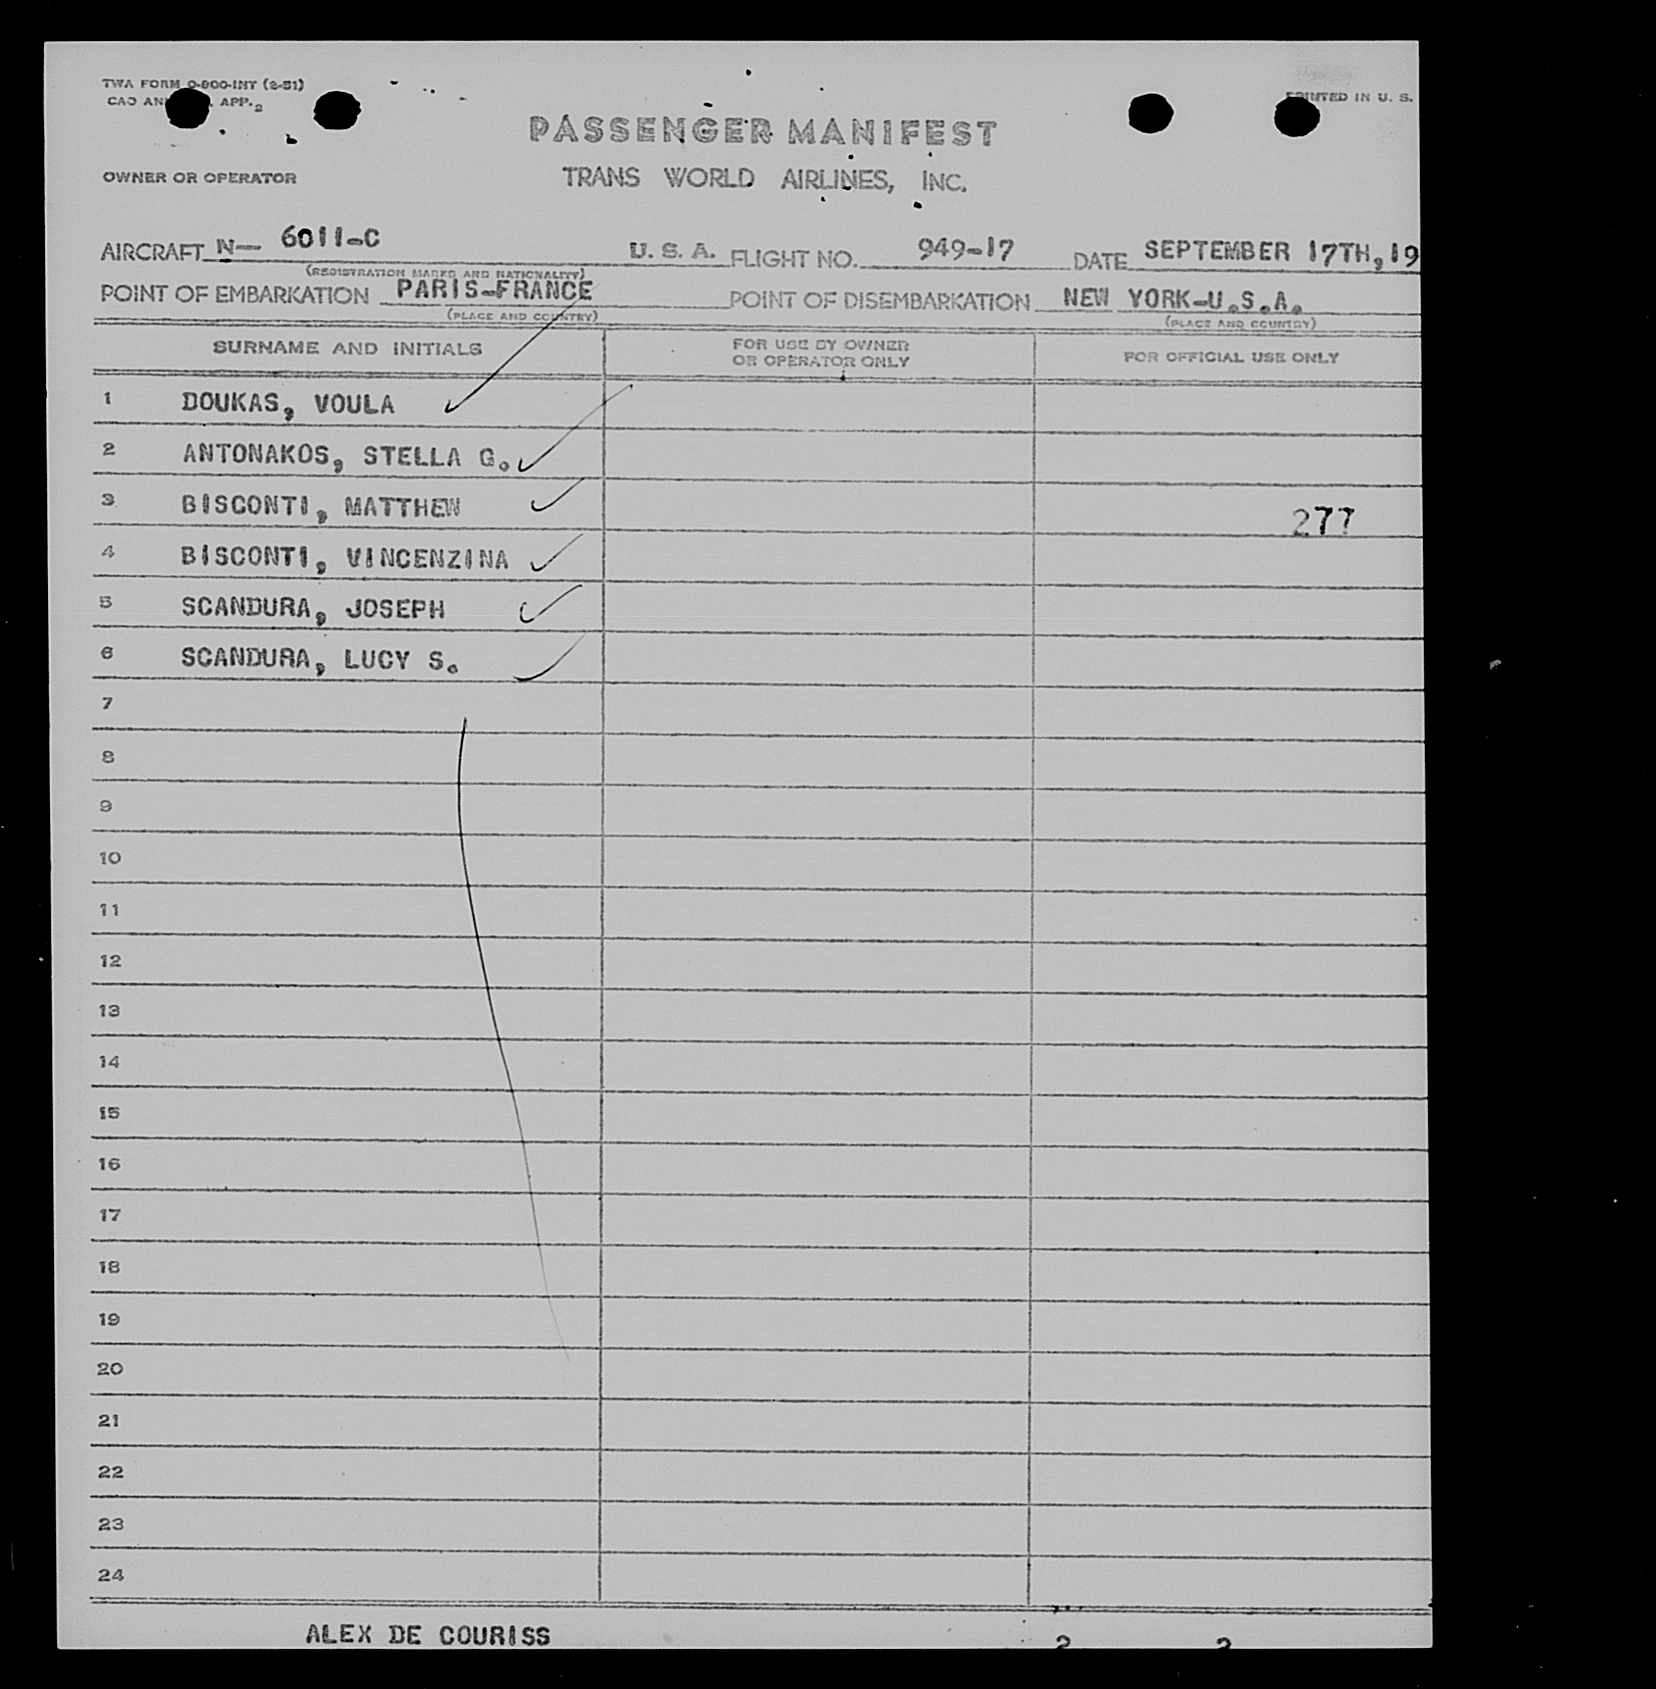 TWA FORM O-900-INT (2-51)
CAO APP. 2
PRINTED IN U. S.
PASSENGER MANIFEST
OWNER OR OPERATOR
TRANS WORLD AIRLINES, INC.
AIRCRAFT N— 6011-C U. S. A. FLIGHT NO. 949-17 DATE SEPTEMBER 17TH, 19
(REGISTRATION MARKS AND NATIONALITY)
POINT OF EMBARKATION PARIS-FRANCE POINT OF DISEMBARKATION NEW YORK-U.S.A.
(PLACE AND COUNTRY) (PLACE AND COUNTRY)
SURNAME AND INITIALS FOR USE BY OWNER OR OPERATOR ONLY FOR OFFICIAL USE ONLY
1 DOUKAS, VOULA
2 ANTONAKOS, STELLA G.
3 BISCONTI, MATTHEW 277
4 BISCONTI, VINCENZINA
5 SCANDURA, JOSEPH
6 SCANDURA, LUCY S.
7
8
9
10
11
12
13
14
15
16
17
18
19
20
21
22
23
24
ALEX DE COURISS